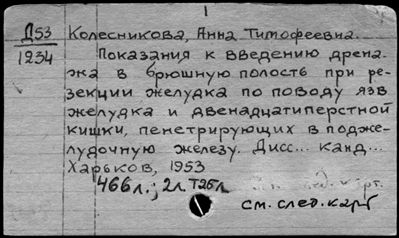 1
Д53 Колесникова, Анна Тимофеевна.
1234 Показания к введению дрена-
жа в брюшную полость при ре-
зекции желудка по поводу язв
желудка и двенадцатиперстной
кишки, пенетрирующих в поджe-
лудочную железу. Дисс... канд...
Харьков, 1953
466 л.; 2 л. табл
см. след. карт